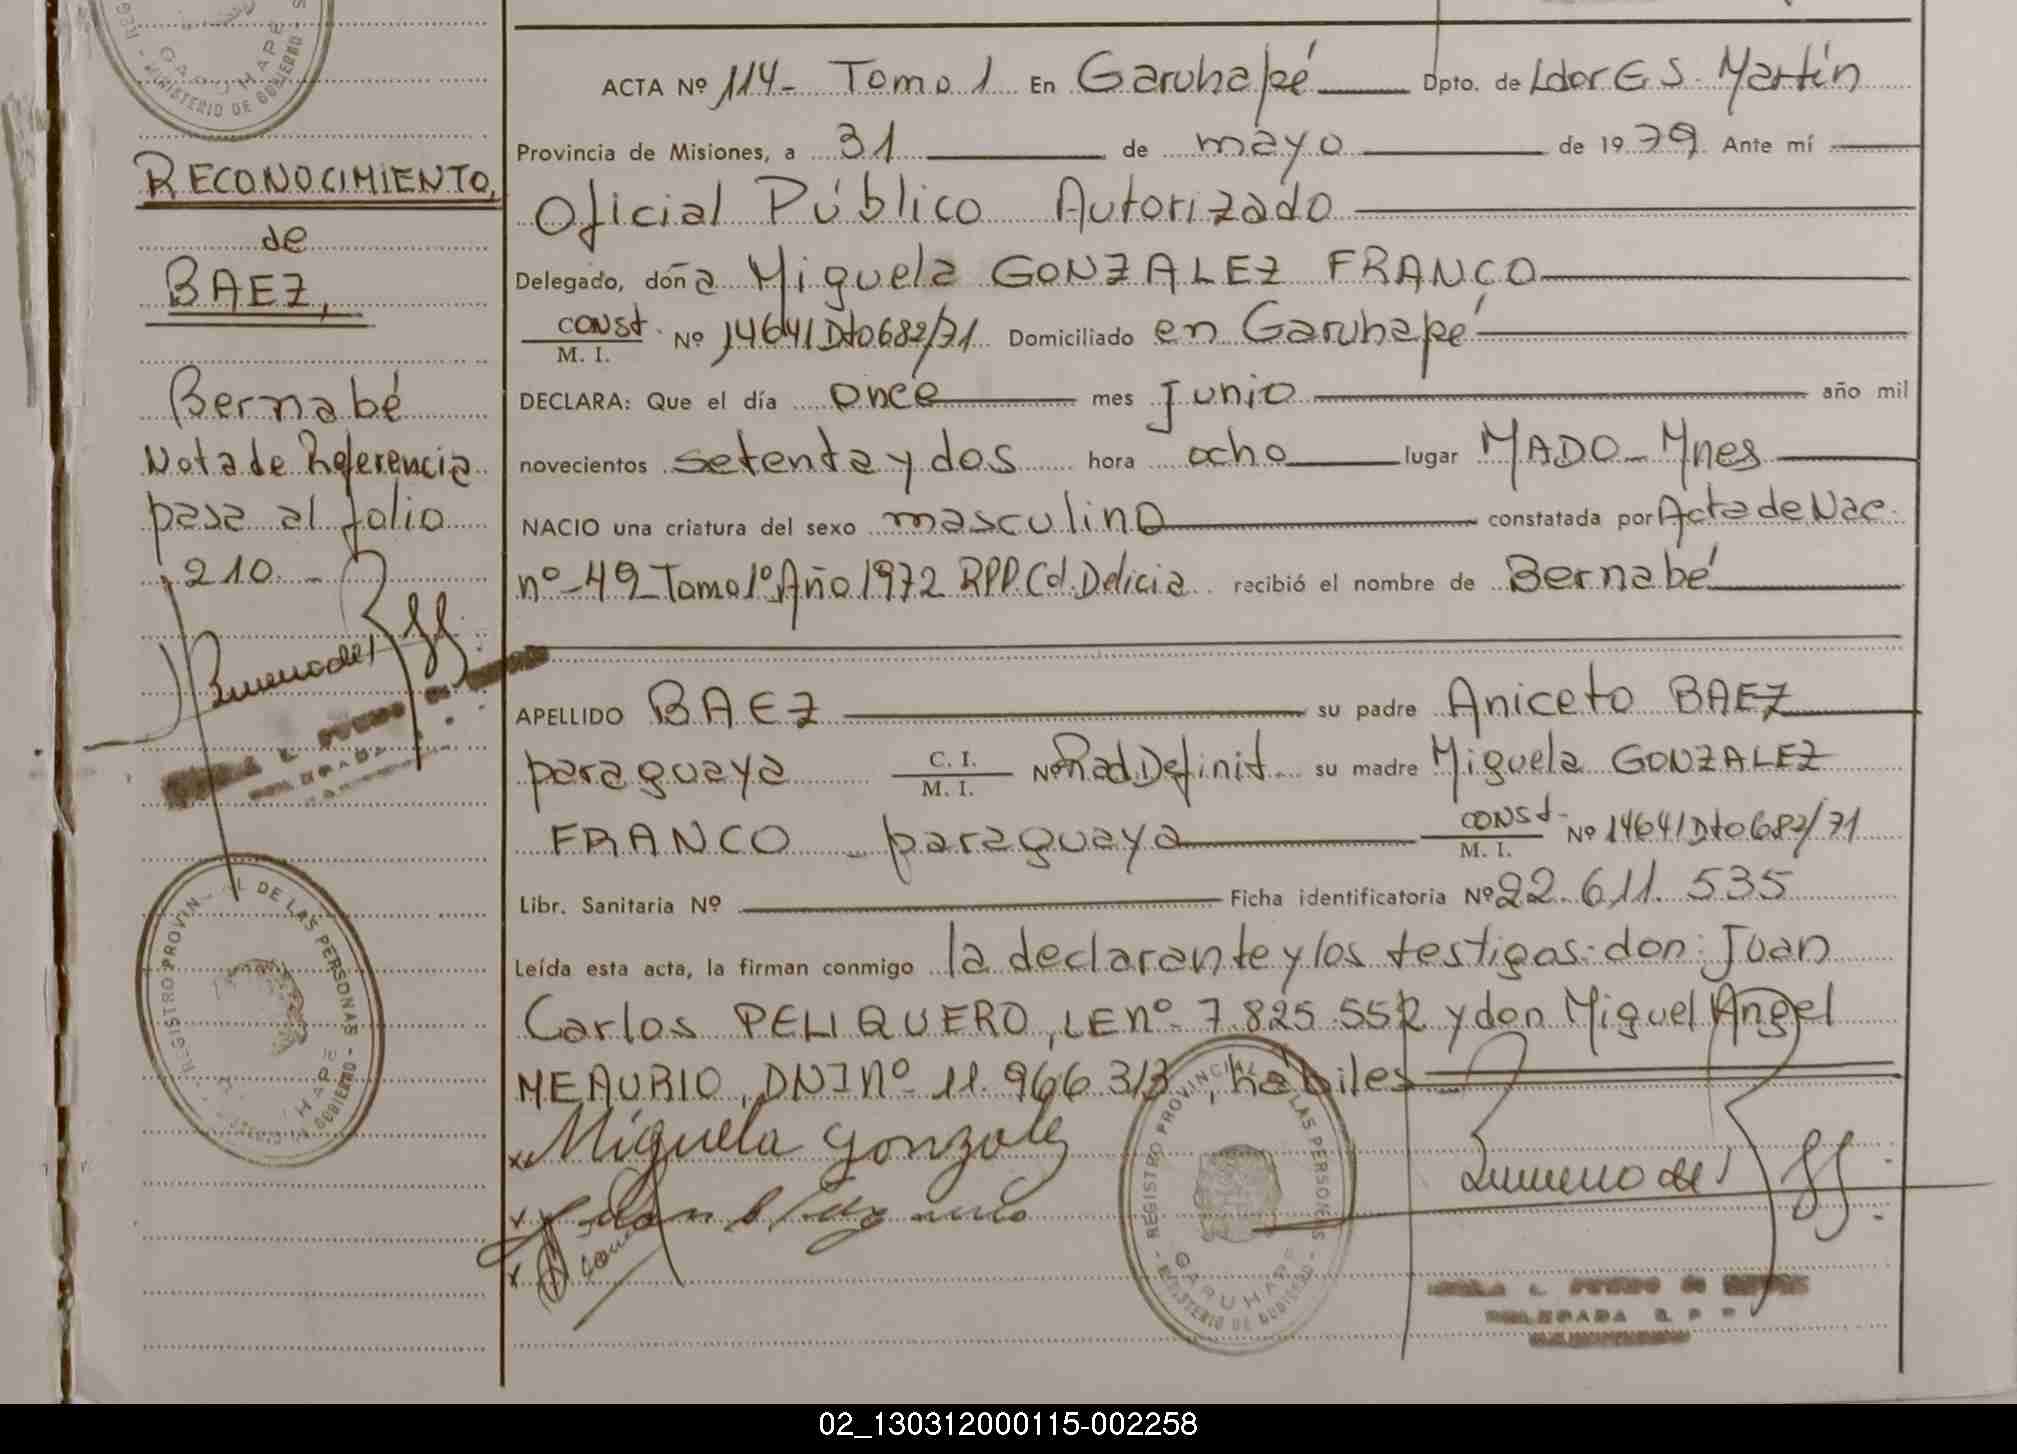 ACTA Nº 114- Tomo 1 En Garuhapé Dpto. de Ldor G S. Martín
Provincia de Misiones, a 31 de mayo de 1979. Ante mí
Oficial Público Autorizado
Delegado, doña Miguela GONZALEZ FRANCO
const. M. I. Nº 14641 Dto 682/71 Domiciliado en Garuhapé
DECLARA: Que el día once mes junio año mil
novecientos setenta y dos hora ocho lugar MADO - Mnes
NACIO una criatura del sexo masculino constatada por Acta de Nac.
nº-49 Tomo 1º Año 1972 RPP. Col. Delicia recibió el nombre de Bernabé
APELLIDO BAEZ su padre Aniceto BAEZ
paraguaya C. I. M. I. Nº Rad. Definit. su madre Miguela GONZALEZ
FRANCO - paraguaya const. M. I. Nº 14641 Dto 682/71
Libr. Sanitaria Nº Ficha identificatoria Nº 22.611.535
Leída esta acta, la firman conmigo la declarante y los testigos: don: Juan
Carlos PELIQUERO, LE nº- 7.825.552 y don Miguel Angel
MEAURIO, DNI nº- 11.966.313, hábiles
Miguela Gonzalez
RECONOCIMIENTO,
de
BAEZ,
Bernabé
Nota de Referencia
pasa al folio
210.-
GARUHAPE
MINISTERIO DE GOBIERNO
REGISTRO PROVINCIAL DE LAS PERSONAS
MINISTERIO DE GOBIERNO
REGISTRO PROVINCIAL DE LAS PERSONAS
GARUHAPE
MINISTERIO DE GOBIERNO
DELEGADA R. P. P.
02_130312000115-002258